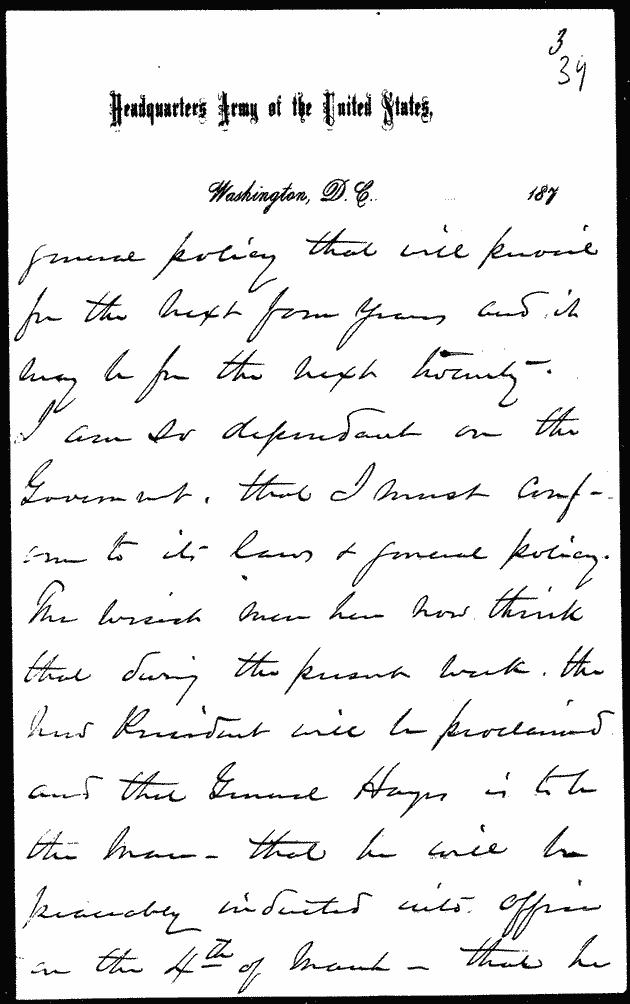 3
39
Headquarters Army of the United States,
Washington, D.C. 187
general policy that will prevail
for the next four years and it
may be for the next twenty.
I am so dependant on the
Government, that I must conf-
orm to its laws & general policy.
The wisest men here now think
that during the present week, the
new President will be proclaimed
and that General Hayes is to be
the man - that he will be
peaceably inducted into office
on the 4th of March - that he